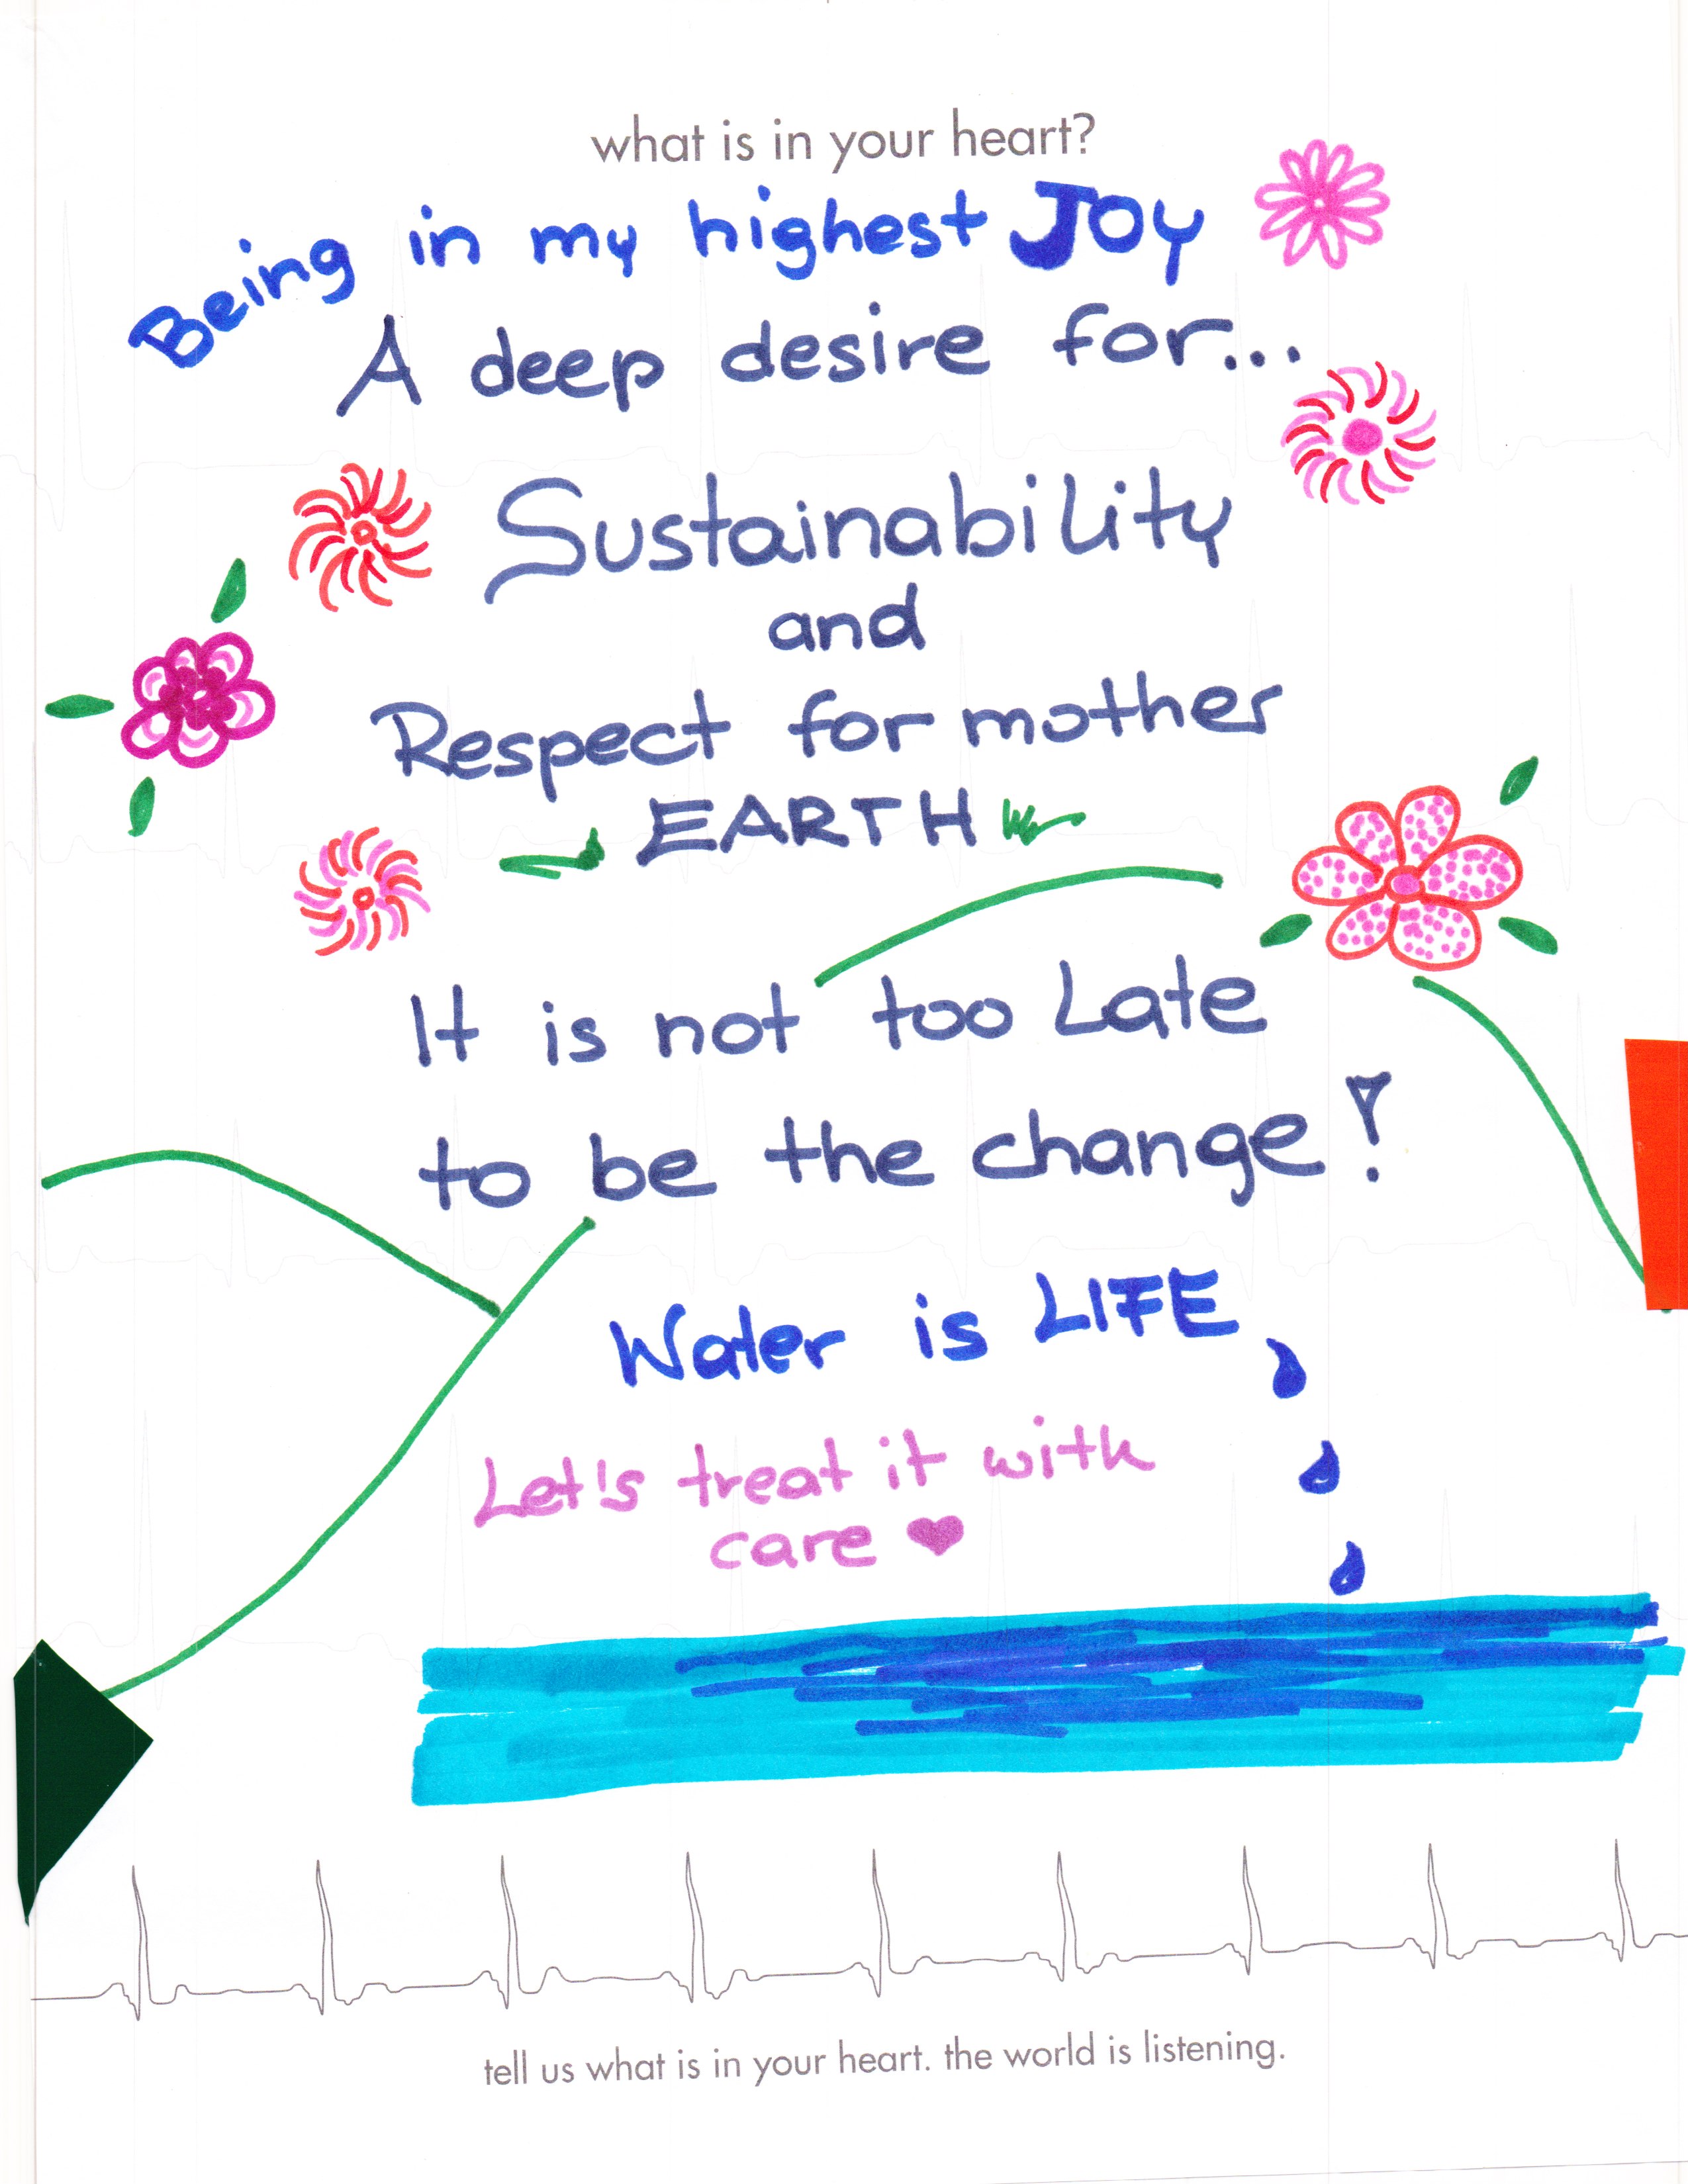 what is in your heart?
Being in my highest JOY
A deep desire for...
Sustainability
and
Respect for mother
EARTH
It is not too Late
to be the change!
Water is LIFE
Let's treat it with
care
tell us what is in your heart. the world is listening.